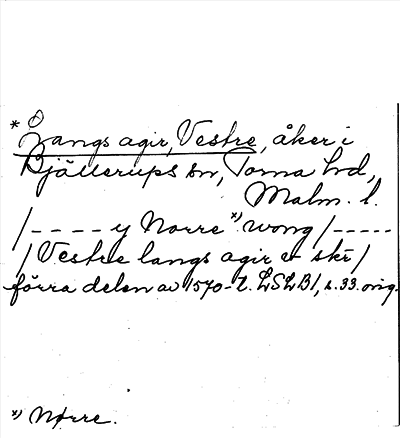 * Langs agir, Vestre, åker i
Bjällerups sn, Torna hd,
Malm. l.
/ - - - - y Norre *) wong / - - - - -
/ Vestre langs agir e skr /
förra delen av 1570-t. LSLB1, s. 33. orig.
*) Nørre.